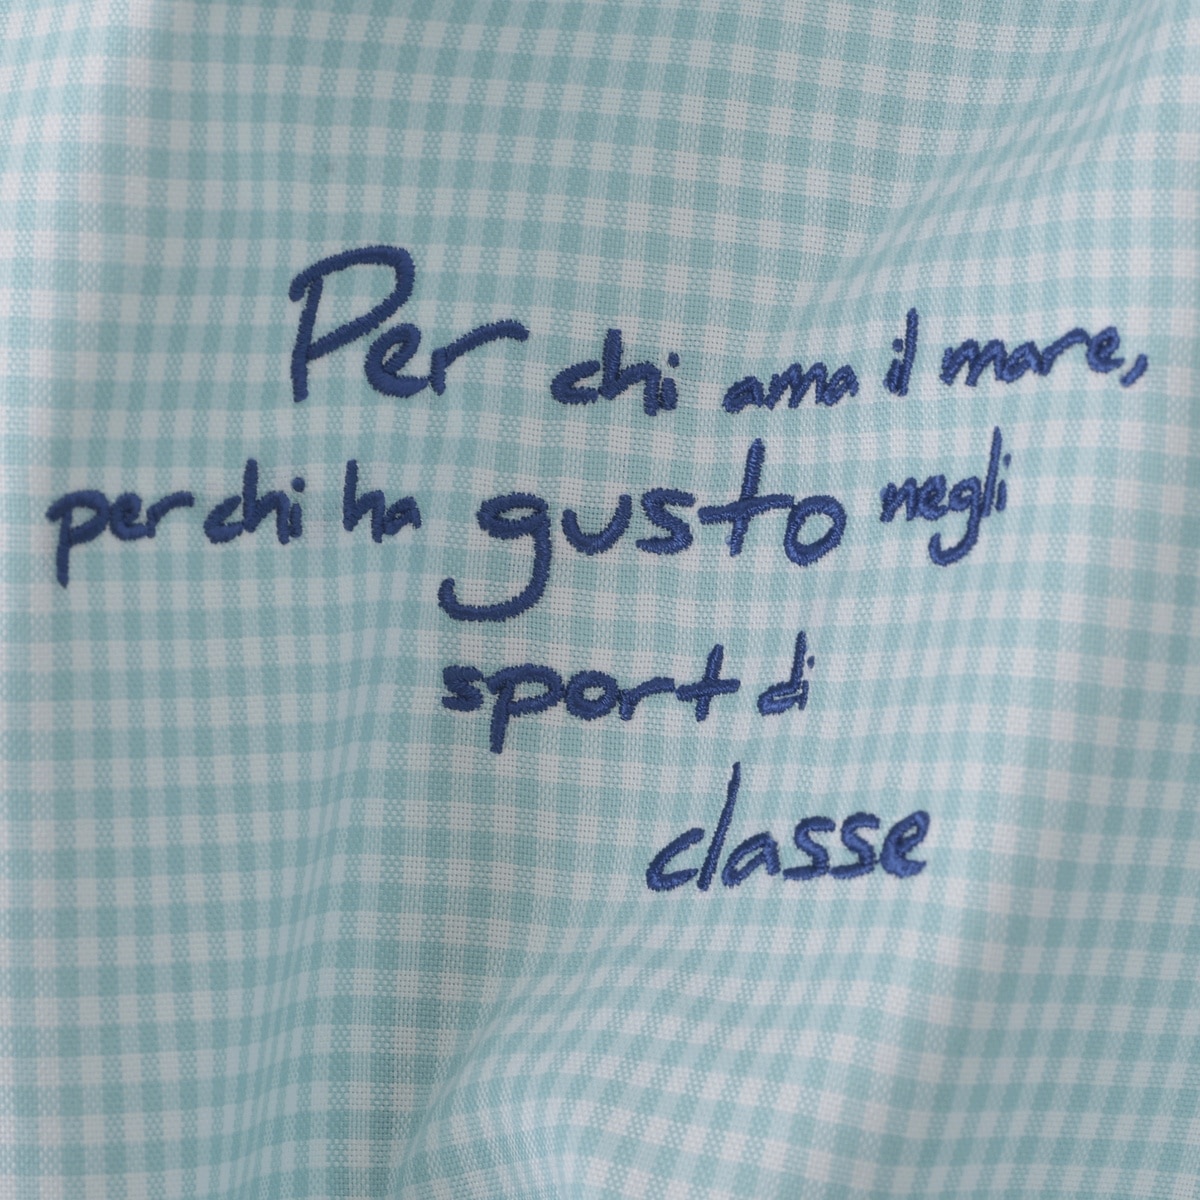 Per chi ama il mare,
per chi ha gusto negli
sport di
classe